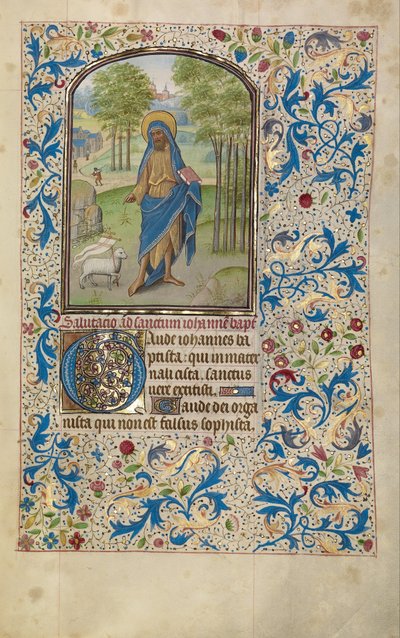 Salutacio ad sanctum iohanne bapt
Gaude iohannes ba
ptista: qui in mater
nali cista. sanctus
vere extitisti.
Gaude dei orga
nista qui non est falsus sophista.